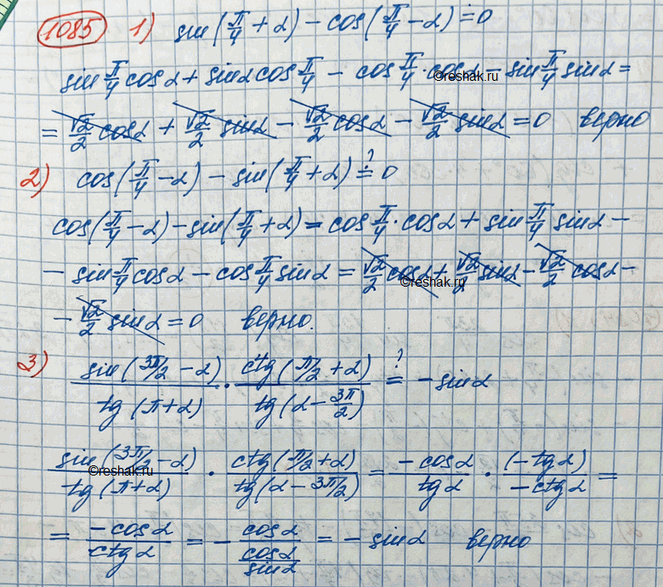 1085 1) sin(π/4 + α) − cos(π/4 − α) = 0
sin π/4 cos α + sin α cos π/4 − cos π/4 · cos α − sin π/4 sin α =
= √2/2 cos α + √2/2 sin α − √2/2 cos α − √2/2 sin α = 0 верно
2) cos(π/4 − α) − sin(π/4 + α) ?= 0
cos(π/4 − α) − sin(π/4 + α) = cos π/4 · cos α + sin π/4 sin α −
− sin π/4 cos α − cos π/4 sin α = √2/2 cos α + √2/2 sin α − √2/2 cos α −
− √2/2 sin α = 0 верно.
3) sin(3π/2 − α)/tg(π + α) · ctg(π/2 + α)/tg(α − 3π/2) ?= − sin α
sin(3π/2 − α)/tg(π + α) · ctg(π/2 + α)/tg(α − 3π/2) = −cos α/tg α · (−tg α)/−ctg α =
= −cos α/ctg α = − cos α/(cos α/sin α) = − sin α верно
©reshak.ru
©reshak.ru
©reshak.ru